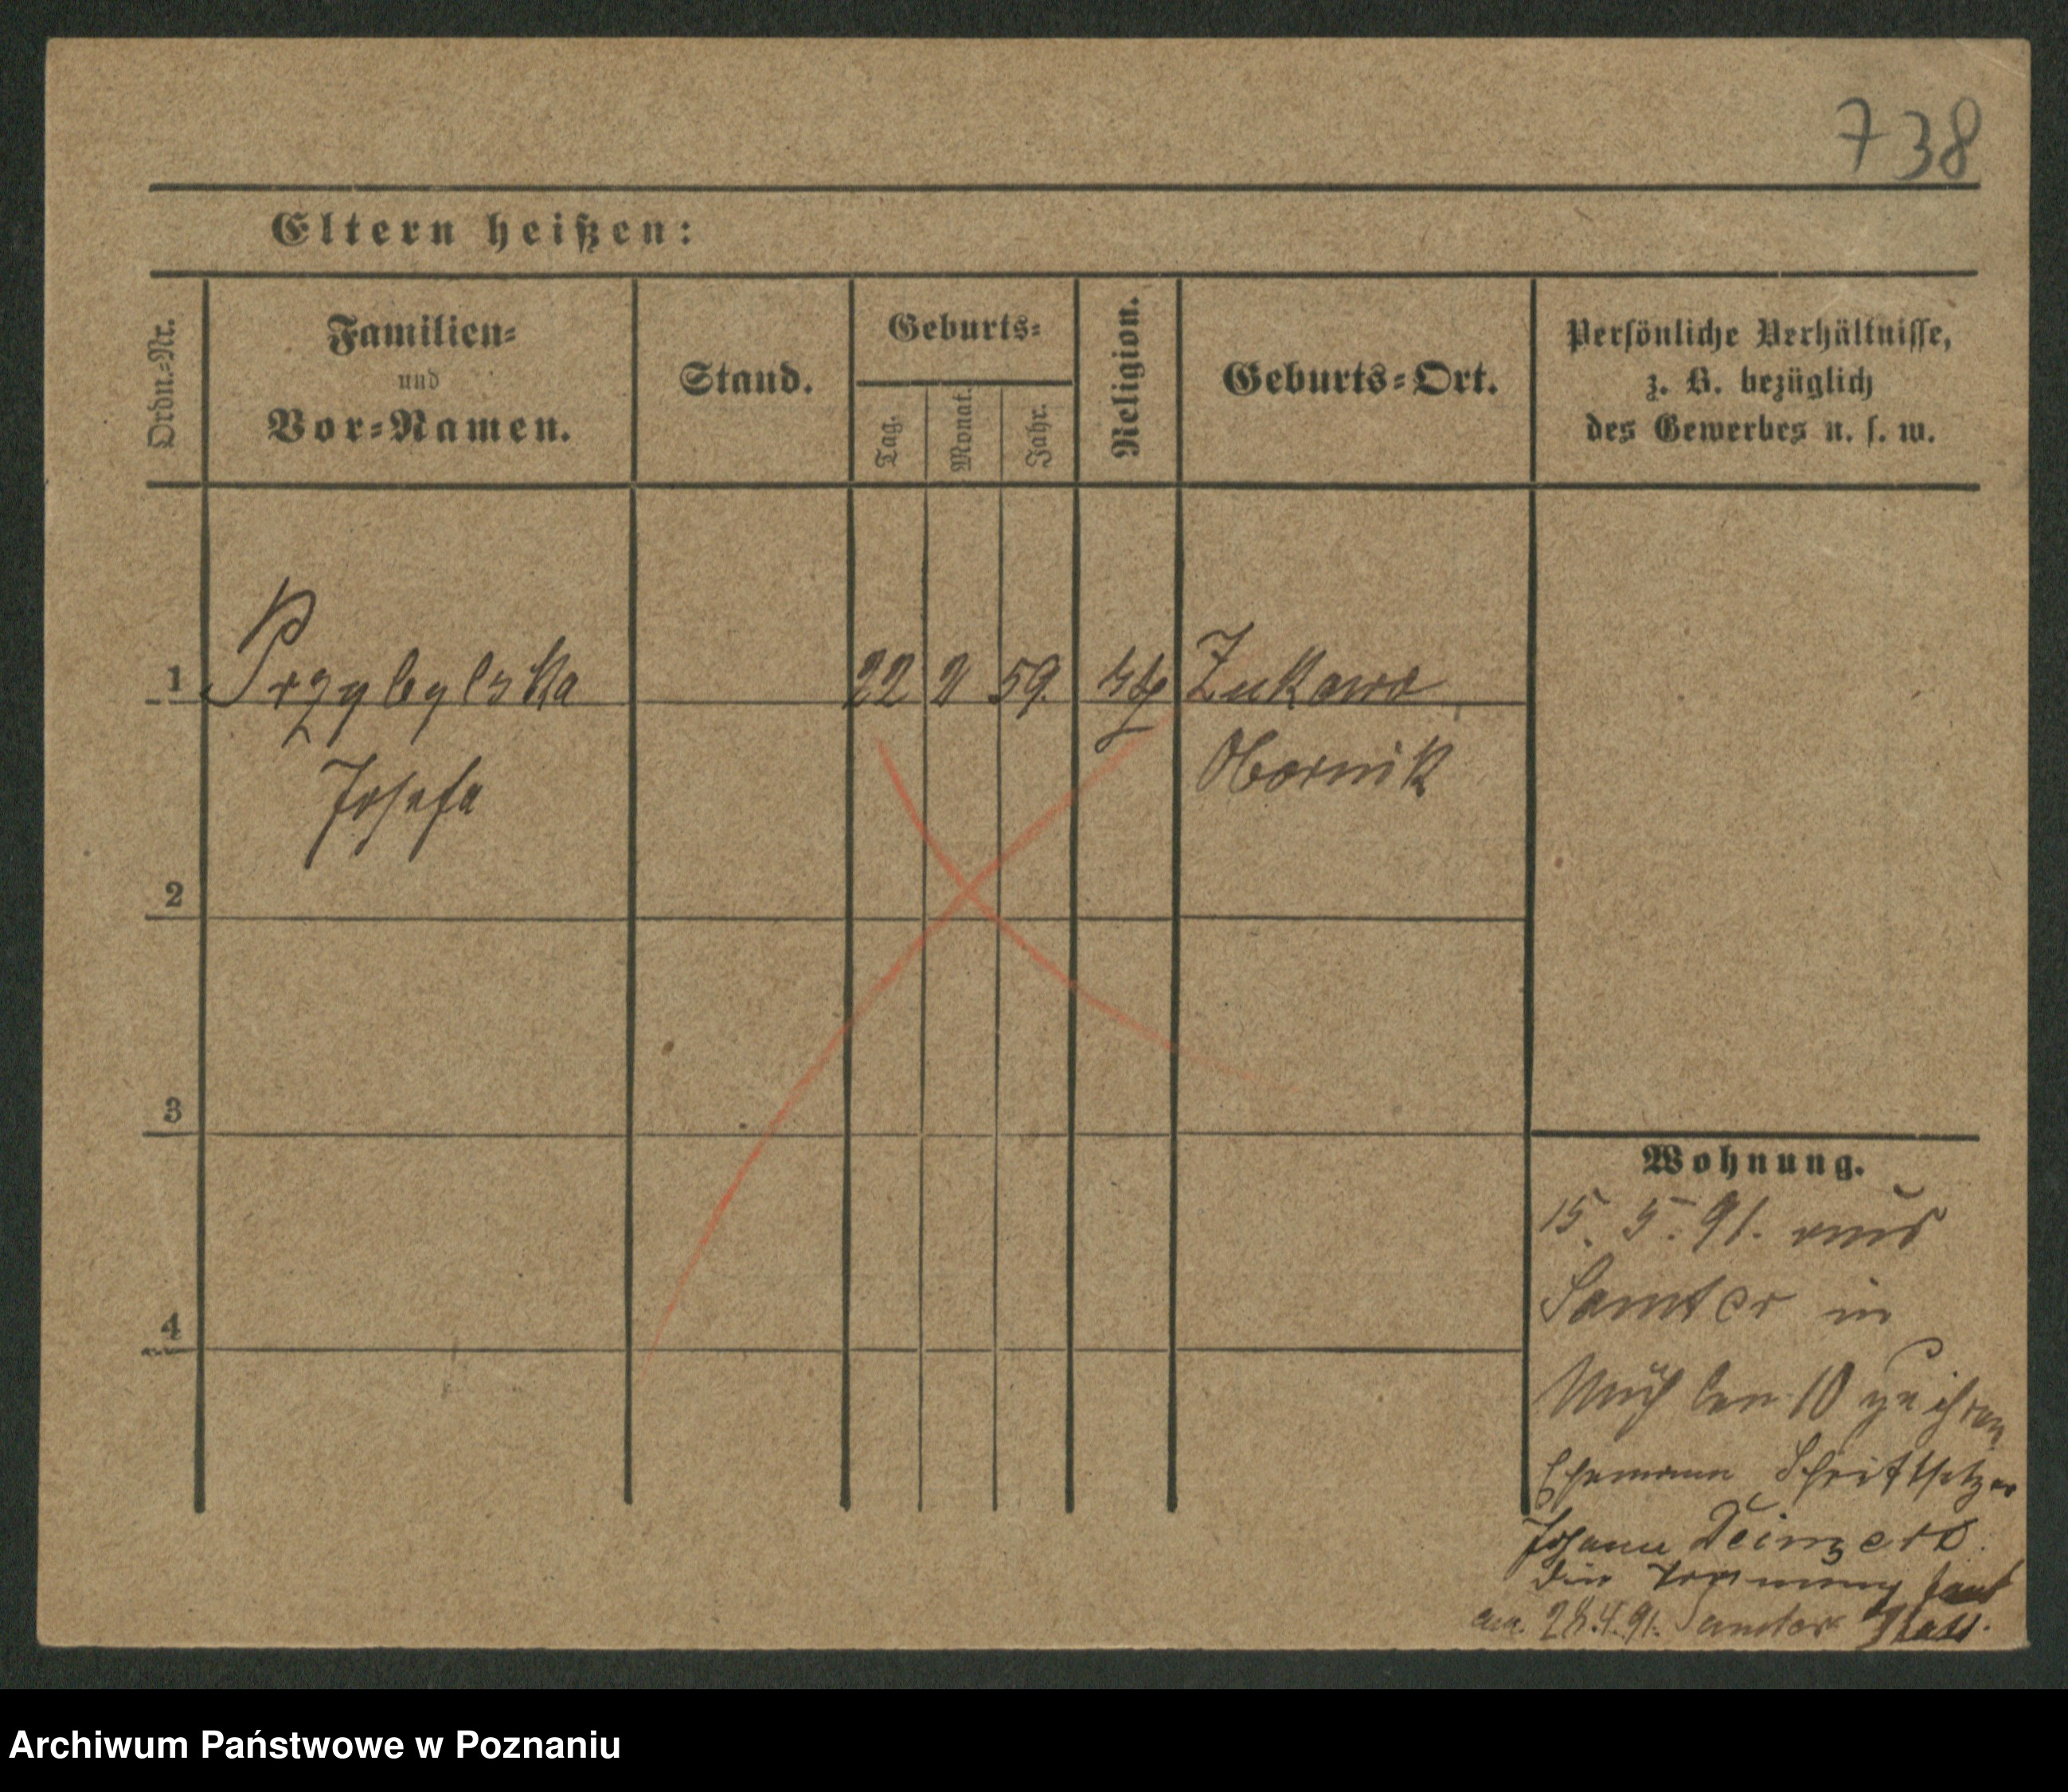 738
Eltern heißen:
Ordn.-Nr.
Familien-
und
Vor-Namen.
Stand.
Geburts-
Tag.
Monat.
Jahr.
Religion.
Geburts-Ort.
Persönliche Verhältnisse,
z. B. bezüglich
des Gewerbes u. s. w.
1 Przybylska 22 2 59. kth Zukowo
Josefa Obornik
2
3
4
Wohnung.
15. 5. 91. aus
Samter in
Mühlen 10 zu ihrem
Ehemann Schriftsetzer
Johann Deinzert.
Die Trennung fand
am. 28.4.91. Samter statt.
Archiwum Państwowe w Poznaniu